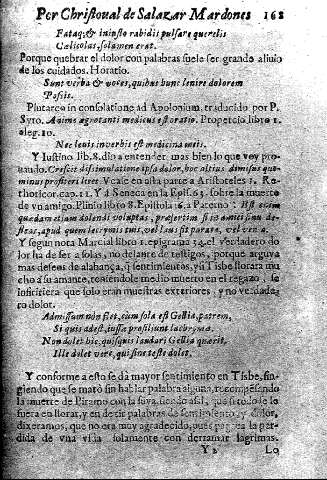 Por Christoual de Salazar Mardones 162
Fataq; & iniusto rabidis pulsare querelis
Cælicolas, solamen erat.
Porque quebrar el dolor con palabras suele ser grande aliuio
de los cuidados. Horatio.
Sunt verba & voces, quibus hunc lenire dolorem
Possis.
Plutarco in consolatione ad Apolonium, traducido por P.
Syro. Animo ægrotanti medicus est oratio. Propercio libro 1.
eleg. 10.
Nec leuis in verbis est medicina meis.
Y Iustino lib. 8. dio a entender mas bien lo que voy pro
uando. Crescit dissimulatione ipsa dolor, hoc altius dimissus quo
minus profiteri licet. Vease en alta parte a Aristoteles 1. Re-
thoricor. cap. 11. Y a Seneca en la Epist. 63. sobre la muerte
de vn amigo. Plinio libro 8. Epistola 16. a Paterno: Est enim
quædam etiam dolendi voluptas, præsertim si in amici sinu de-
fleas, apud quem lacrymis tuis, vel laus sit parata, vel venia.
Y segun nota Marcial libro 1. epigrama 34. el verdadero do
lor ha de ser a solas, no delante de testigos, porque arguya
mas deseos de alabança, q̃ sentimientos, y si Tisbe llorara mu
cho a su amante, teniendole medio muerto en el regazo, se
sospechara que solo eran muestras exteriores, y no verdade
ro dolor.
Admissum non flet, cum sola est Gellia, patrem,
Si quis adest, iussæ prosiliunt lacrymæ.
Non dolet hic, quisquis laudari Gellia quærit,
Ille dolet vere, qui sine teste dolet.
Y conforme a esto se da mayor sentimiento en Tisbe, fin-
giendo que se mató sin hablar palabra alguna, recompensando
la muerte de Piramo con la suya, siendo assi, que si todo se lo
fuera en llorar, y en dezir palabras de sentimiento, y dolor,
dixeramos, que no era muy agradecido, pues pagaua la per-
dida de vna vida solamente con derramar lagrimas.
Y 2 Lo